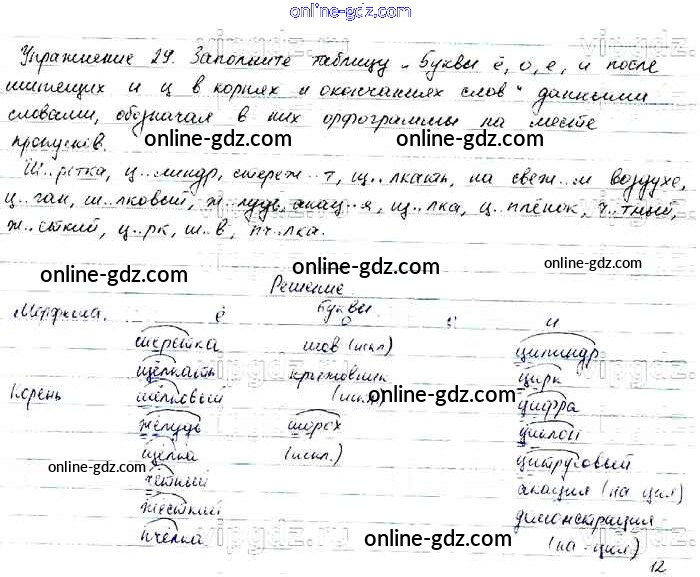 online-gdz.com
Упражнение 29. Заполните таблицу „Буквы ё, о, е, и после
шипящих и ц в корнях и окончаниях слов" данными
словами, обозначая в них орфограммы на месте
пропусков.
Ш..рстка, ц..линдр, стереж..т, щ..лкать, на свеж..м воздухе,
ц..ган, ш..лковый, ж..лудь, акац..я, щ..лка, ц..плёнок, ч..тный,
ж..сткий, ц..рк, ш..в, пч..лка.
online-gdz.com
online-gdz.com
online-gdz.com
online-gdz.com
online-gdz.com
Решение
Морфема. Буквы
ё о е и
шёрстка шов (искл) цилиндр
щёлкать крыжовник цирк
Корень шёлковый (искл) цифра
online-gdz.com
жёлудь шорох
щёлка (искл.) цитрусовый
online-gdz.com
чётный акация (на ция)
жёсткий демонстрация
пчёлка (на -ция)
online-gdz.com
online-gdz.com
12